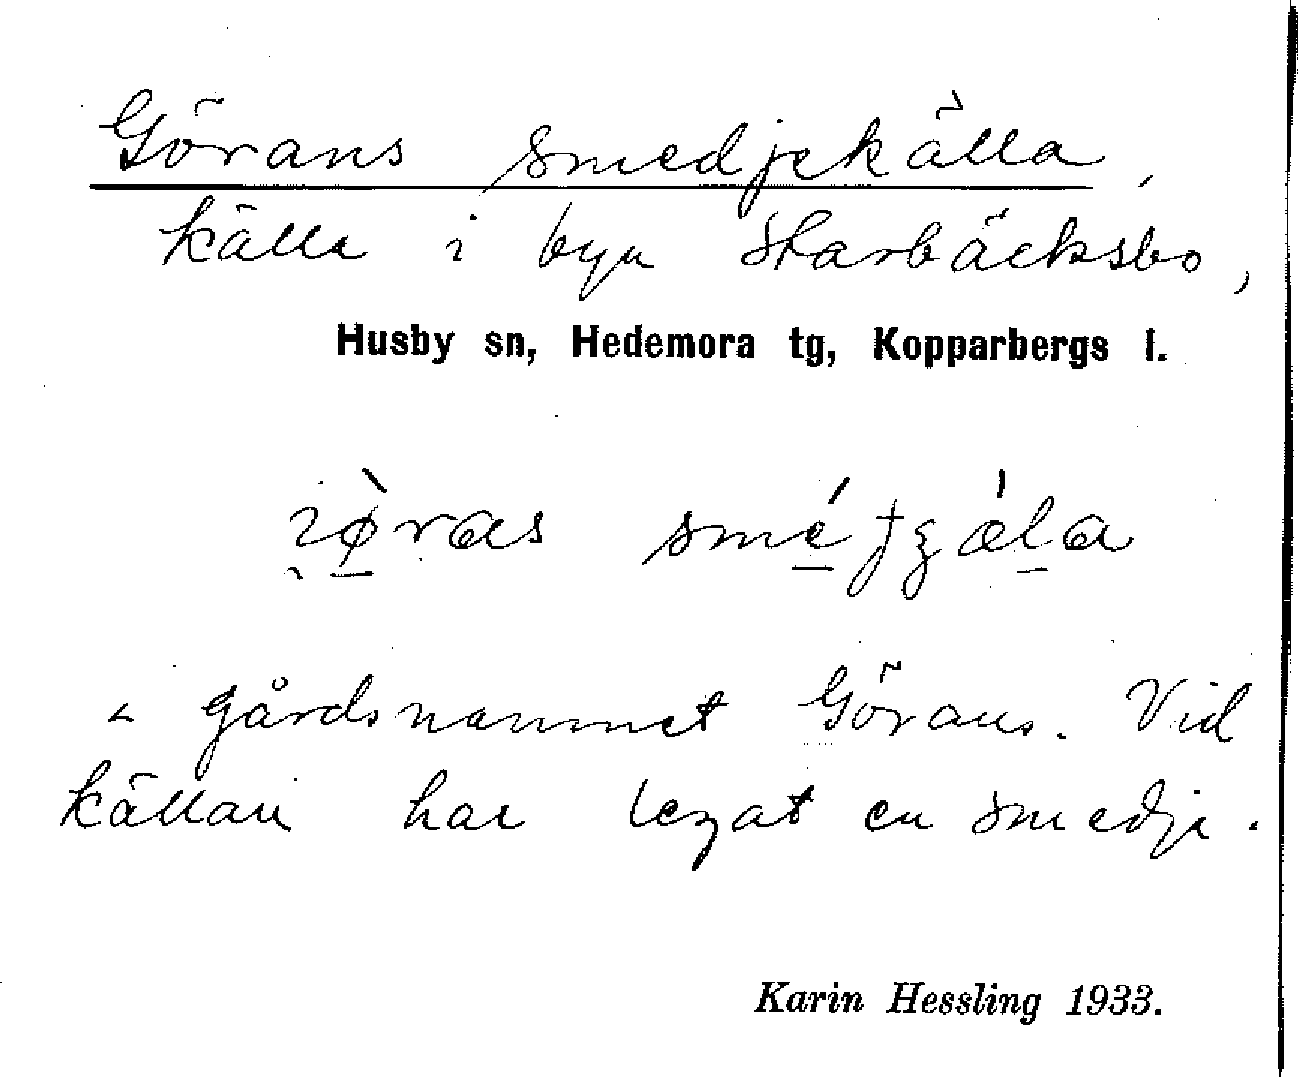 Görans smedjekälla,
källa i byn Starbäcksbo,
Husby sn, Hedemora tg, Kopparbergs l.
< gårdsnamnet Görans. Vid
källan har legat en smedja.
Karin Hessling 1933.